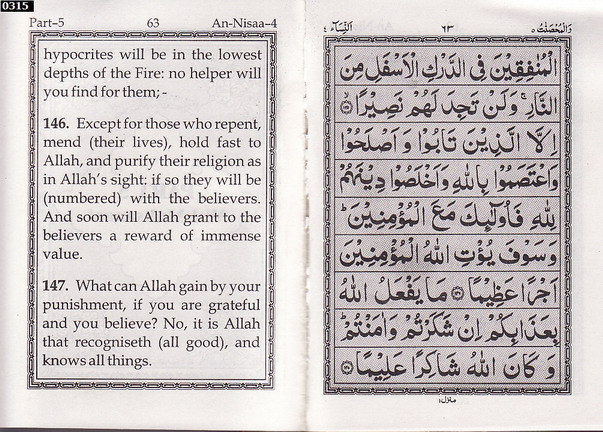 0315
Part–5 63 An-Nisaa–4
hypocrites will be in the lowest
depths of the Fire: no helper will
you find for them; -
146. Except for those who repent,
mend (their lives), hold fast to
Allah, and purify their religion as
in Allah's sight: if so they will be
(numbered) with the believers.
And soon will Allah grant to the
believers a reward of immense
value.
147. What can Allah gain by your
punishment, if you are grateful
and you believe? No, it is Allah
that recogniseth (all good), and
knows all things.
وَالْمُحْصَنٰتُ ٥ ٦٣ اَلنِّسَآء ٤
الْمُنٰفِقِيْنَ فِى الدَّرْكِ الْاَسْفَلِ مِنَ
النَّارِ ۚ وَلَنْ تَجِدَ لَهُمْ نَصِيْرًا ۙ‏﴿١٤٥﴾
اِلَّا الَّذِيْنَ تَابُوْا وَ اَصْلَحُوْا
وَاعْتَصَمُوْا بِاللّٰهِ وَاَخْلَصُوْا دِيْنَهُمْ
لِلّٰهِ فَاُولٰٓئِكَ مَعَ الْمُؤْمِنِيْنَ ؕ
وَسَوْفَ يُؤْتِ اللّٰهُ الْمُؤْمِنِيْنَ
اَجْرًا عَظِيْمًا ﴿١٤٦﴾ مَا يَفْعَلُ اللّٰهُ
بِعَذَابِكُمْ اِنْ شَكَرْتُمْ وَاٰمَنْتُمْ ؕ
وَ كَانَ اللّٰهُ شَاكِرًا عَلِيْمًا ﴿١٤٧﴾
منزل ١